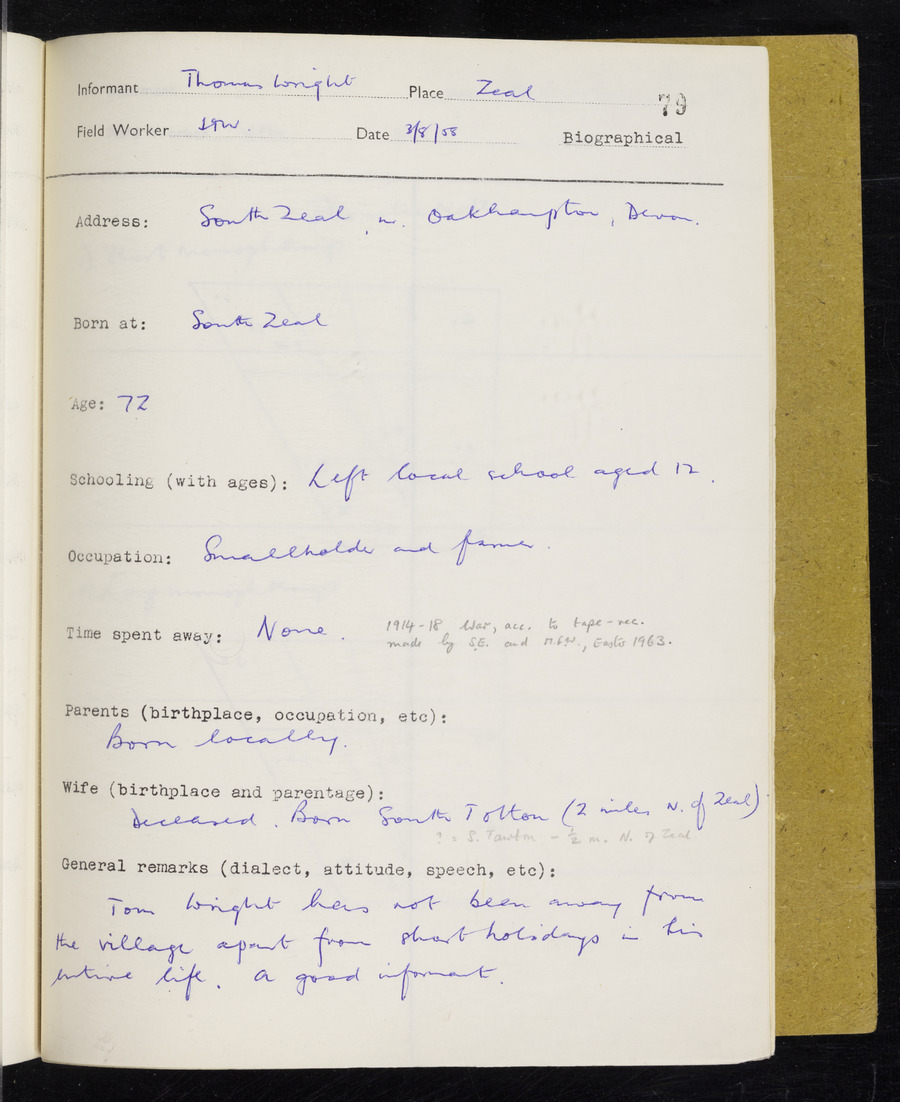 Informant Thomas Wright Place Zeal
79
Field Worker Date 3/8/58 Biographical
Address: South Zeal, nr. Oakhampton, Devon.
Born at: South Zeal
Age: 72
Schooling (with ages): Left local school aged 12.
Occupation: Smallholder and farmer.
Time spent away: None. 1914-18 War, acc. to tape-rec.
made by S.E. and Easter 1963.
Parents (birthplace, occupation, etc):
Born locally.
Wife (birthplace and parentage):
Deceased. Born South Totton (2 miles N. of Zeal)
? = S. Tawton - ½ m. N. of Zeal
General remarks (dialect, attitude, speech, etc):
Tom Wright has not been away from
the village apart from short holidays in his
entire life. A good informant.